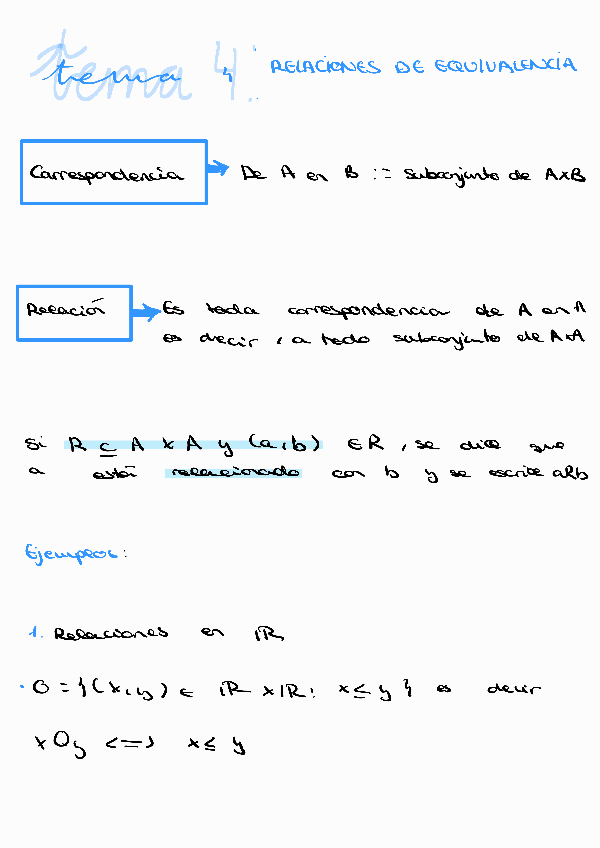 tema 4: RELACIONES DE EQUIVALENCIA
Correspondencia De A en B := subconjunto de AxB
Relación Es toda correspondencia de A en A
es decir, a todo subconjunto de AxA
Si R ⊆ A x A y (a,b) ∈ R, se dice que
a está relacionado con b y se escribe aRb
Ejemplos:
1. Relaciones en ℝ
· O = {(x,y) ∈ ℝ xℝ: x ≤ y} es decir
xOy <=> x ≤ y